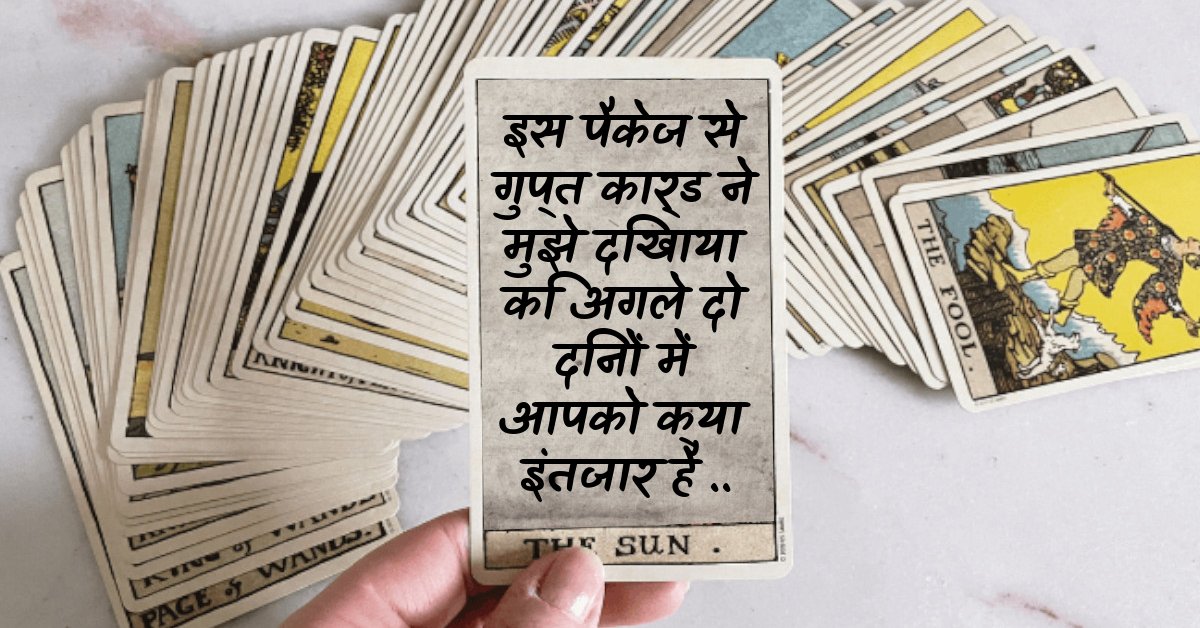 इस पैकेज से
गुप्त कार्ड ने
मुझे दिखाया
कि अगले दो
दिनों में
आपको क्या
इंतजार है ..
THE SUN .
THE FOOL .
KING of WANDS
PAGE of WANDS.